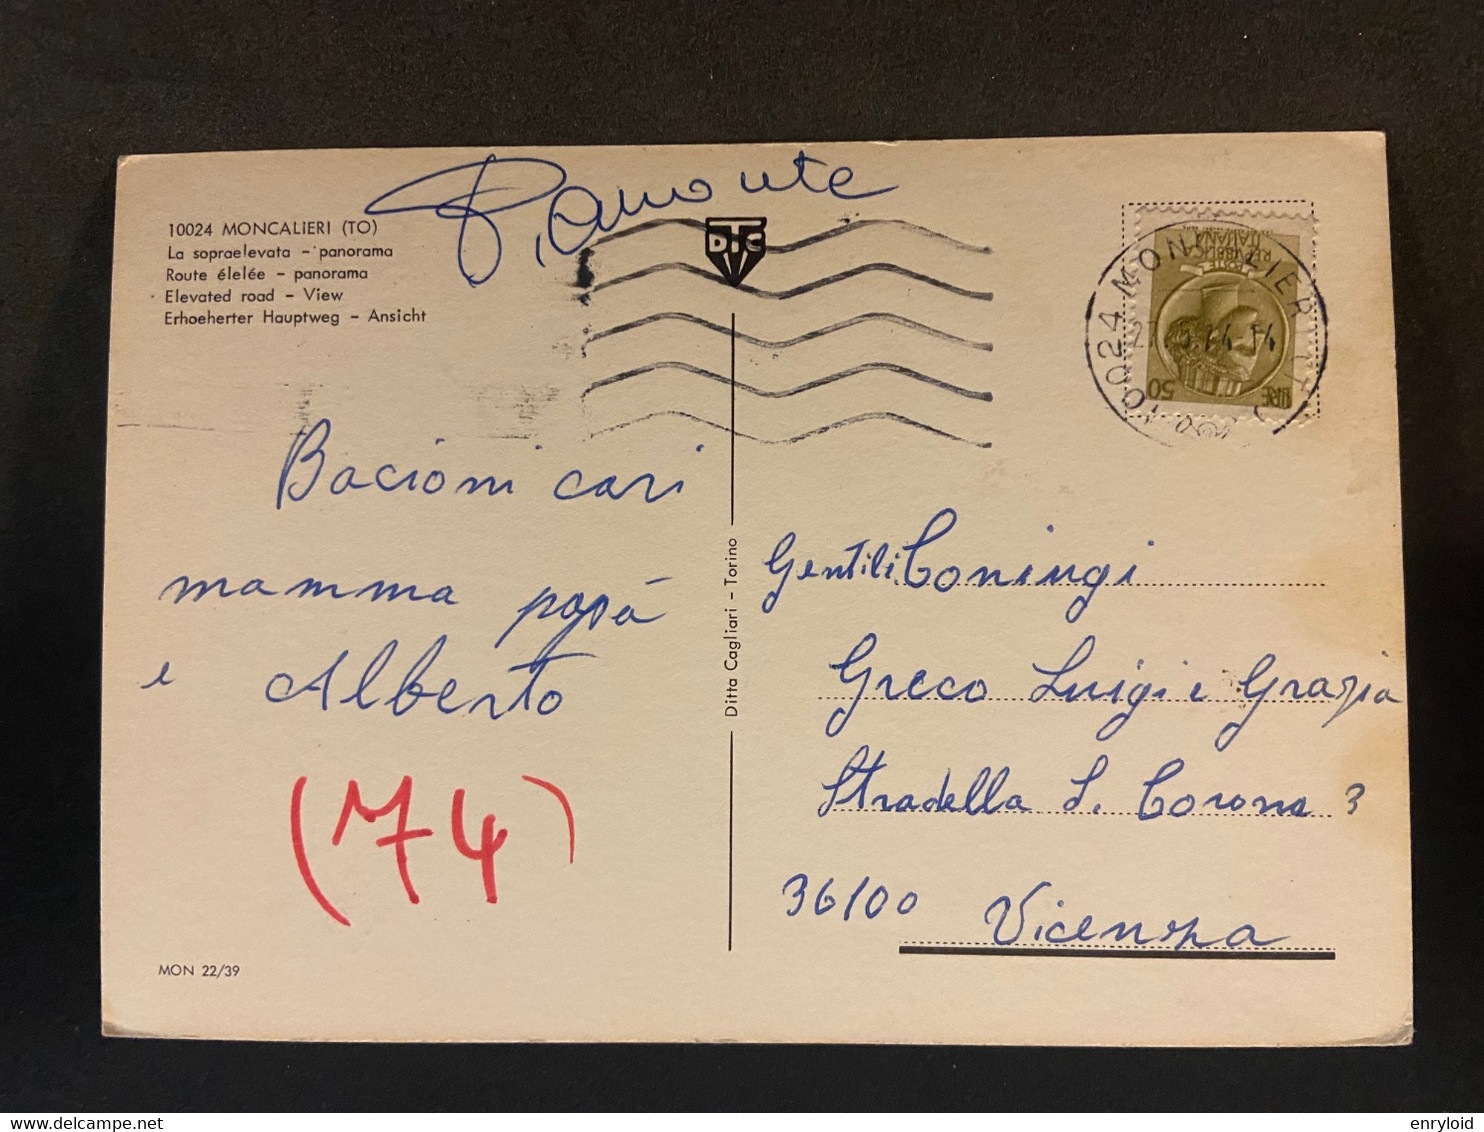 Piemonte
10024 MONCALIERI (TO)
La sopraelevata - panorama
Route élelée - panorama
Elevated road - View
Erhoeherter Hauptweg - Ansicht
DTC
REPUBBLICA
ITALIANA
LIRE 50
10024 MONCALIERI (TO)
Bacioni cari
mamma papà
e Alberto
(74)
MON 22/39
Ditta Cagliari - Torino
Gentili Coniugi
Greco Luigi e Grazia
Stradella S. Corona 3
36100 Vicenza
enryloid